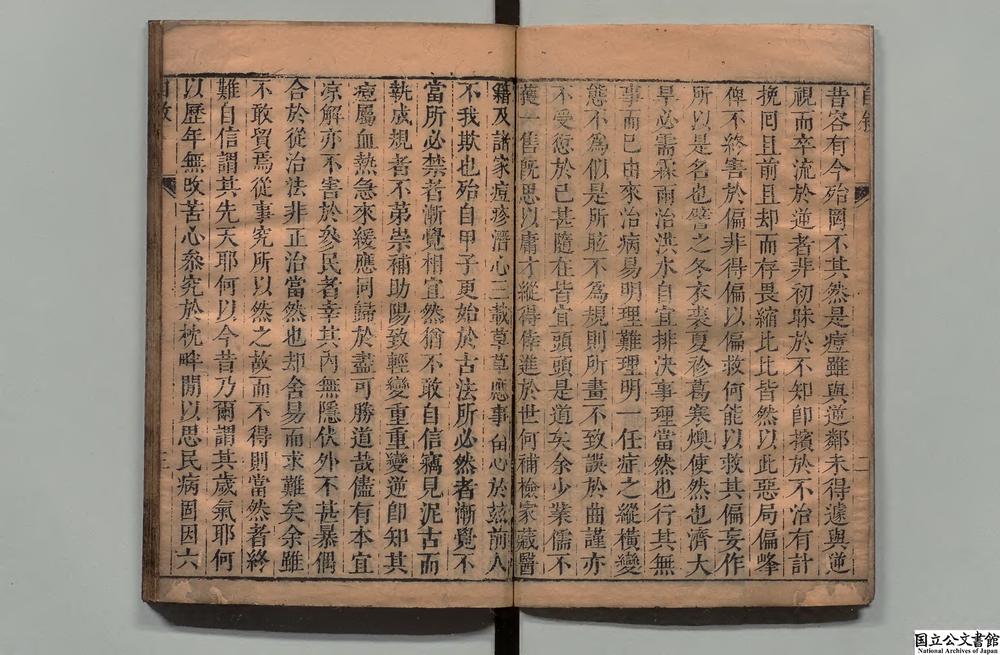 自叙
二
昔容有今殆罔不其然是痘雖與逆鄰未得遽與逆
視而卒流於逆者非初眛於不知卽擯於不治有計
挽回且前且却而存畏縮比比皆然以此惡局偏峰
俾不終害於偏非得偏以偏救何能以救其偏妄作
所以是名也譬之冬衣裘夏袗葛寒燠使然也濟大
旱必需霖雨治洪水自宜排決事理當然也行其無
事而已由來治病易明理難理明一任症之縱橫變
態不爲似是所眩不爲規則所畫不致誤於曲謹亦
不受愆於己甚隨在皆宜頭頭是道矣余少業儒不
獲一售旣思以庸才縱得倖進於世何補檢家藏醫
籍及諸家痘疹潛心三載草草應事留心於玆前人
不我欺也殆自甲子更始於古法所必然者漸覺不
當所必禁者漸覺相宜然猶不敢自信竊見泥古而
執成規者不第崇補助陽致輕變重重變逆卽知其
痘屬血熱急來緩應同歸於盡可勝道哉儘有本宜
凉解亦不害於參民者幸其內無隱伏外不甚暴偶
合於從治法非正治當然也却舍易而求難矣余雖
不敢貿焉從事究所以然之故而不得則當然者終
難自信謂其先天耶何以今昔乃爾謂其歲氣耶何
以歷年無改苦心叅究於枕畔閒以思民病固因六
自叙
三
国立公文書館
National Archives of Japan